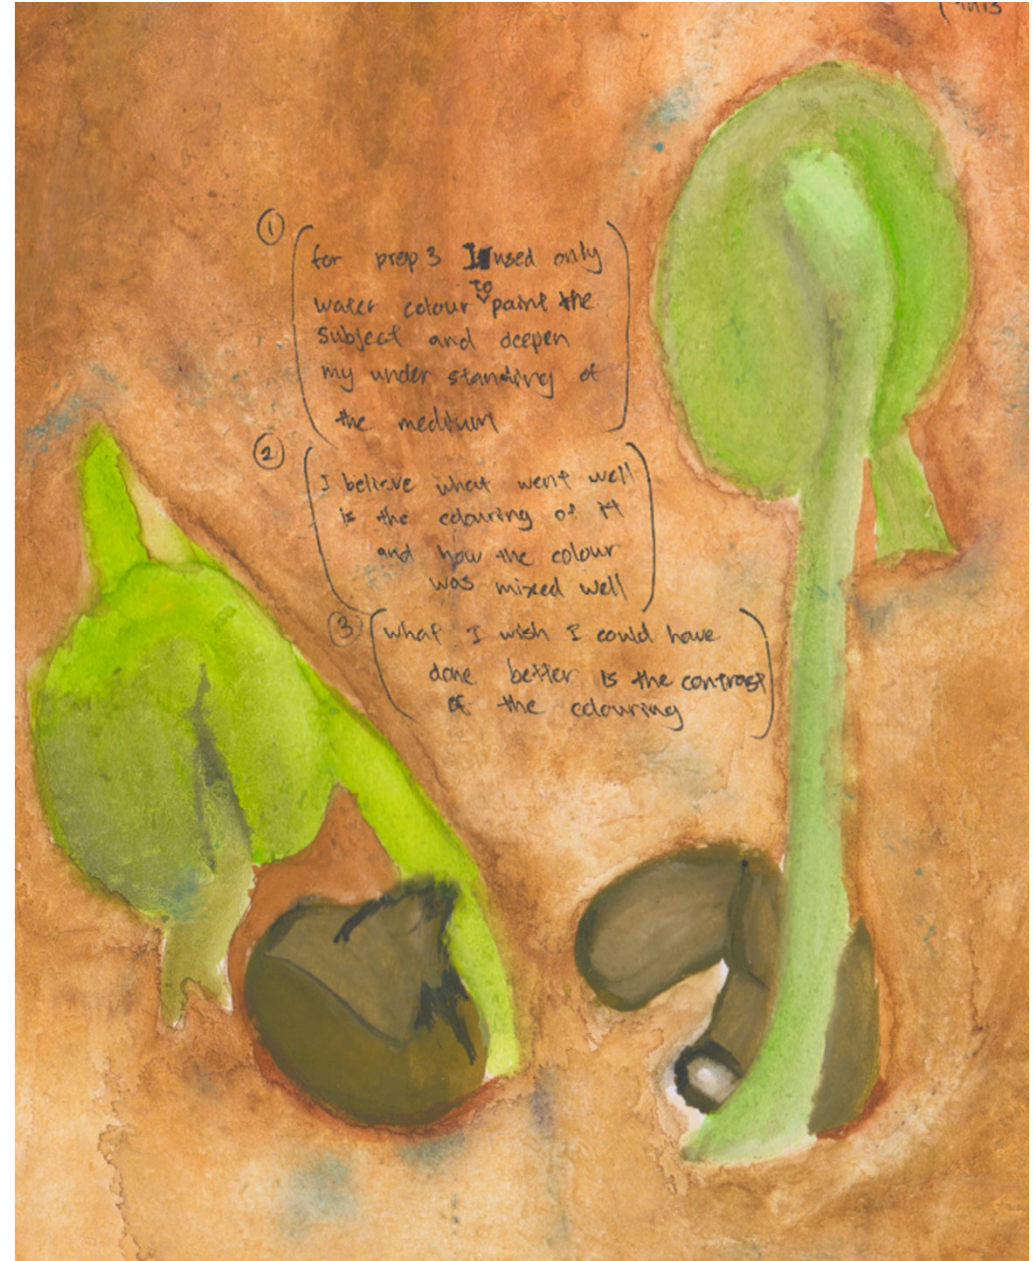 ①
for prep 3 I used only
water colour to paint the
subject and deepen
my under standing of
the medium
②
I believe what went well
is the colouring of it
and how the colour
was mixed well
③
what I wish I could have
done better is the contrast
of the colouring